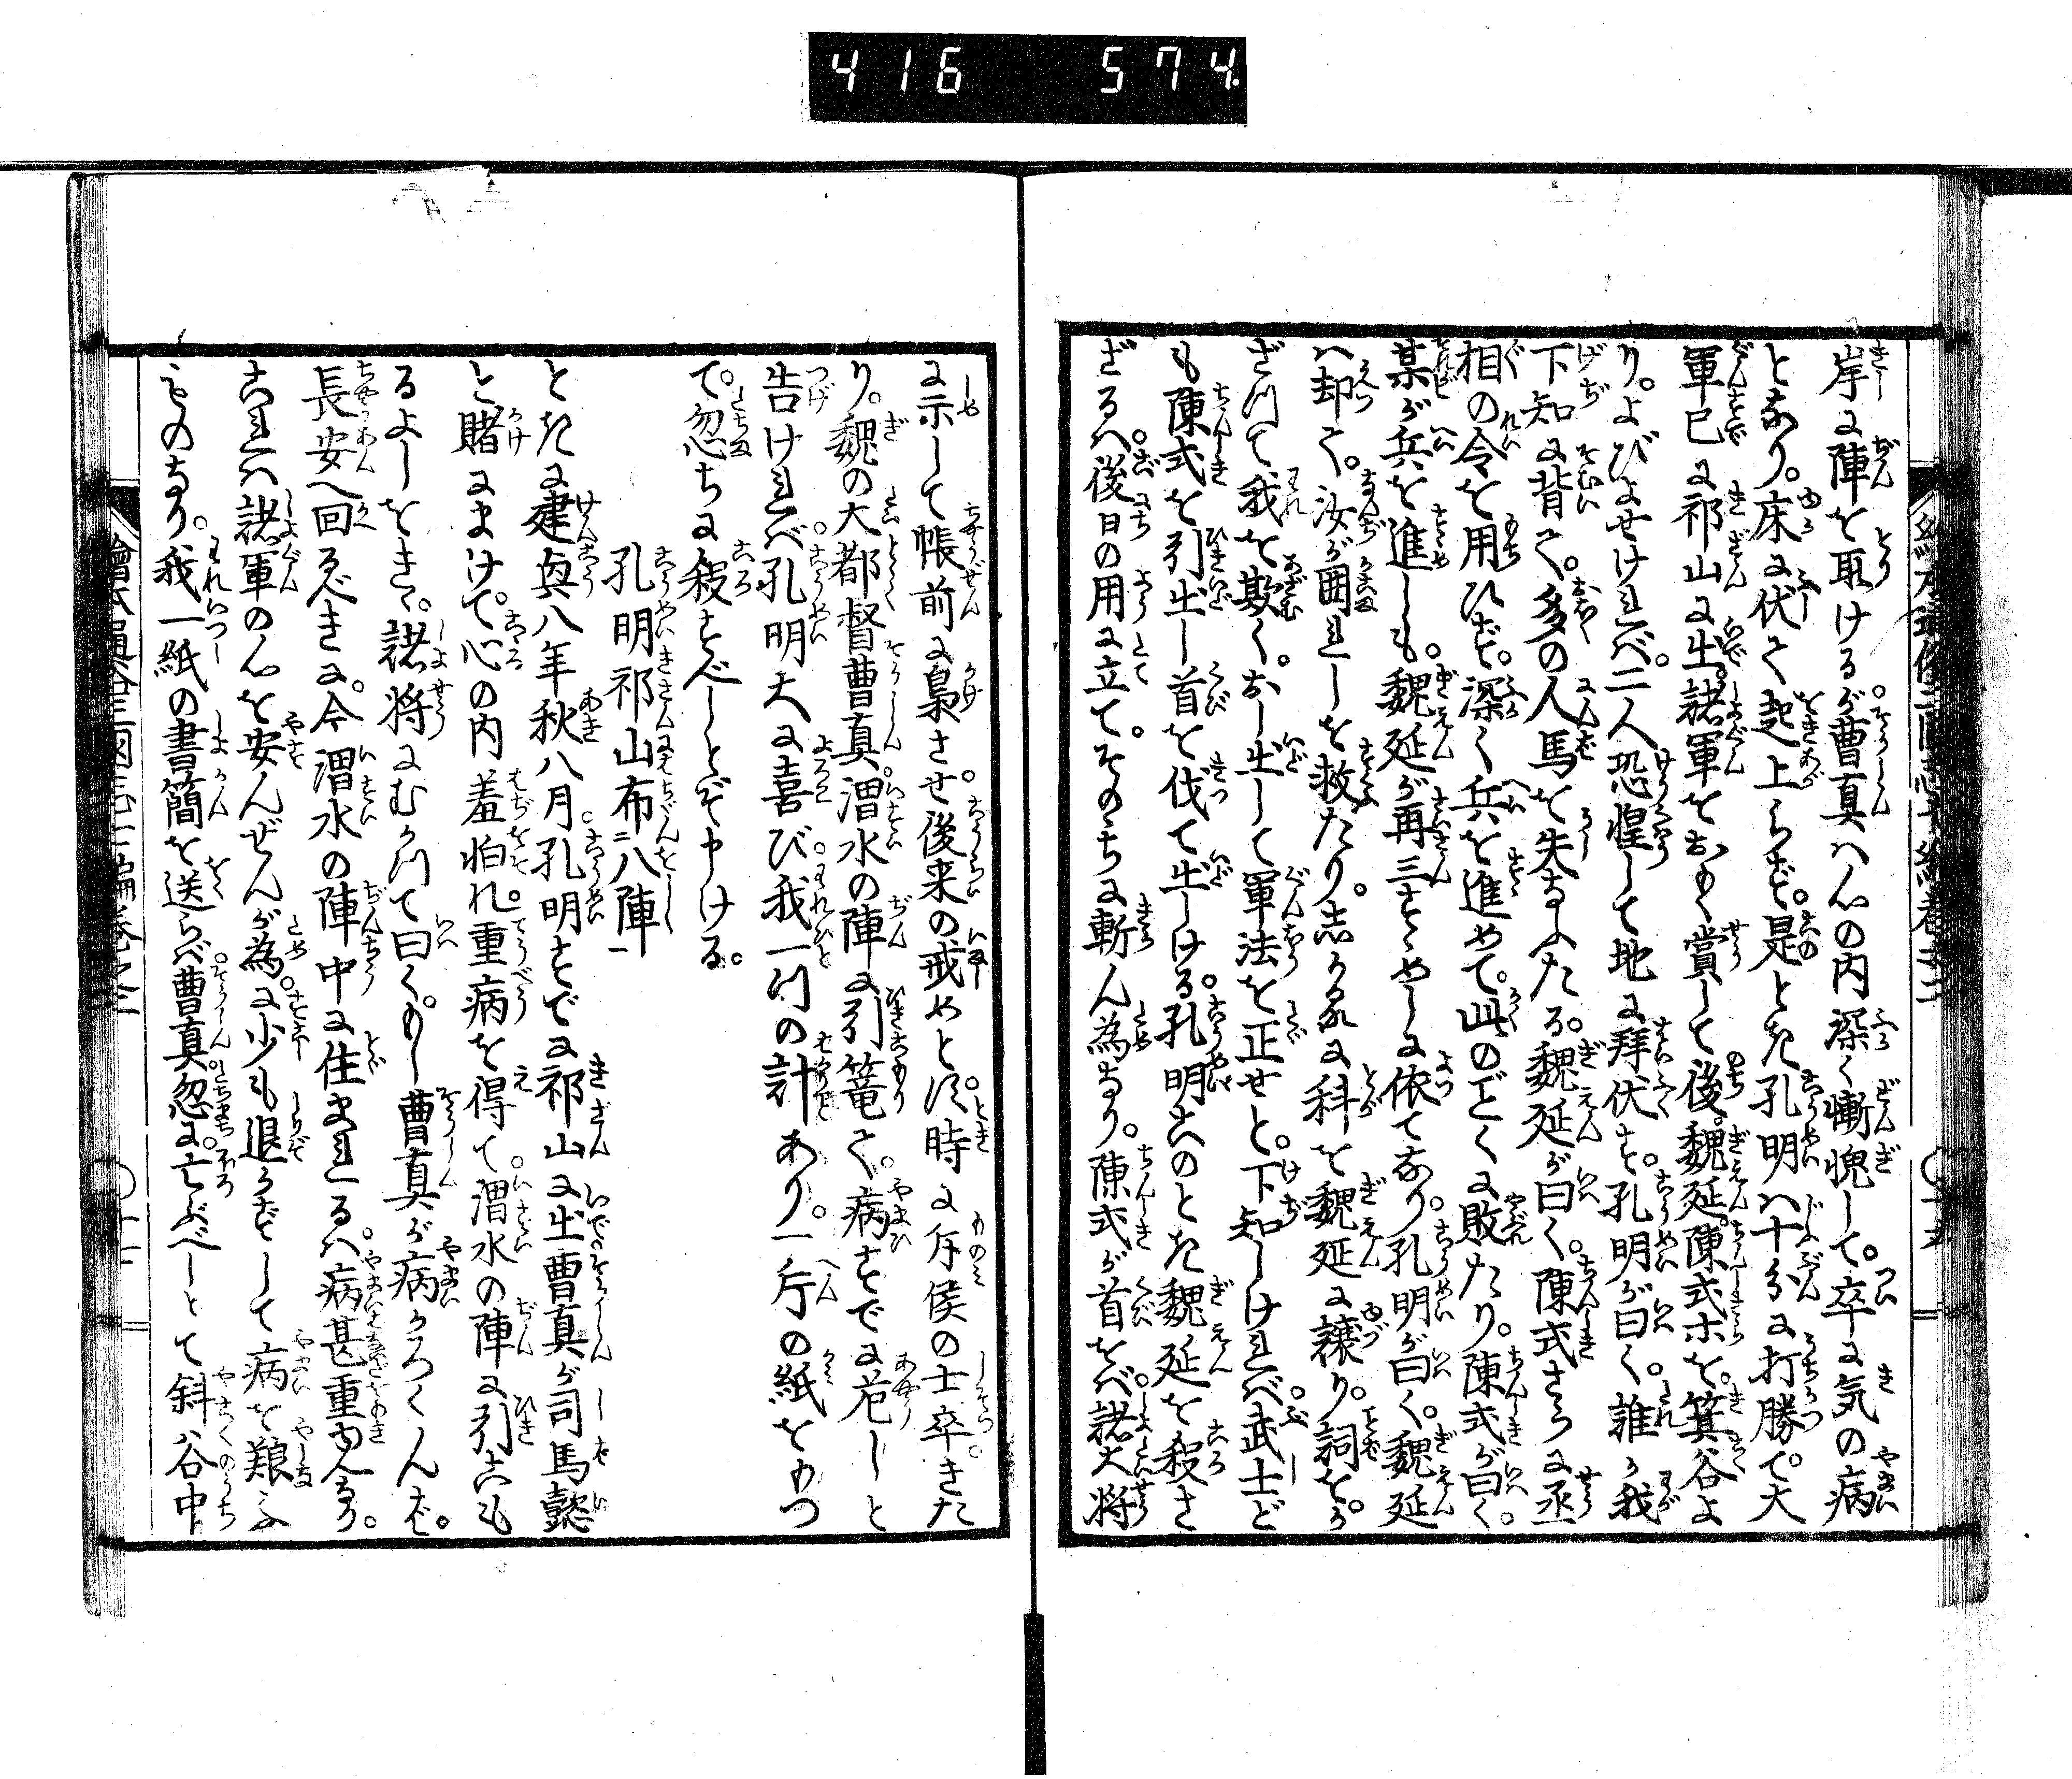 416 574
岸に陣を取けるが。曹真は心の内深く慚愧して。卒に気の病
となり。床に伏て起上らず。是とき孔明は十分に打勝て。大
軍已に祁山に出。諸軍をおもく賞して後。魏延。陳式ホを。箕谷よ
り。よびよせければ。二人恐惶して地に拝伏す。孔明が曰く。誰か我
下知に背て。多の人馬を失なふたる。魏延が曰く。陳式さらに丞
相の令を用ひず。深く兵を進めて。此のごとくに敗たり。陳式が曰く。
某が兵を進しも。魏延が再三すゝめしに依てなり。孔明が曰く。魏延
は却て。汝が囲れしを救たり。しかるに科を魏延に譲り。詞をか
ざつて我を欺く。おし出して軍法を正せと。下知しければ。武士ど
も陳式を引出し首を伐て出しける。孔明このとき魏延を殺さ
ざるは。後日の用に立て。そのちに斬ん為なり。陳式が首をば。諸大将
に示して帳前に梟させ。後来の戒めとす。時に斥侯の士卒。きた
り。魏の大都督曹真。渭水の陣に引篭て。病すでに危しと
告ければ。孔明大に喜び。我一つの計あり。一片の紙をもつ
て。忽ちに殺すべしとぞ申ける。
孔明祁山布二八陣一
ときに建興八年秋八月。孔明すでに祁山に出。曹真が司馬懿
と賭にまけて。心の内羞怕れ。重病を得て。渭水の陣に引こも
るよしをきゝ。諸将にむかつて曰く。もし曹真が病かろくんば。
長安へ回るべきに。今渭水の陣中に住まれるは。病甚重故なり。
これは諸軍の心を安んぜんが為。に少も退かずして病を養ふ
ものなり。我一紙の書簡を送らば。曹真。忽に。亡ぶべしとて斜谷中